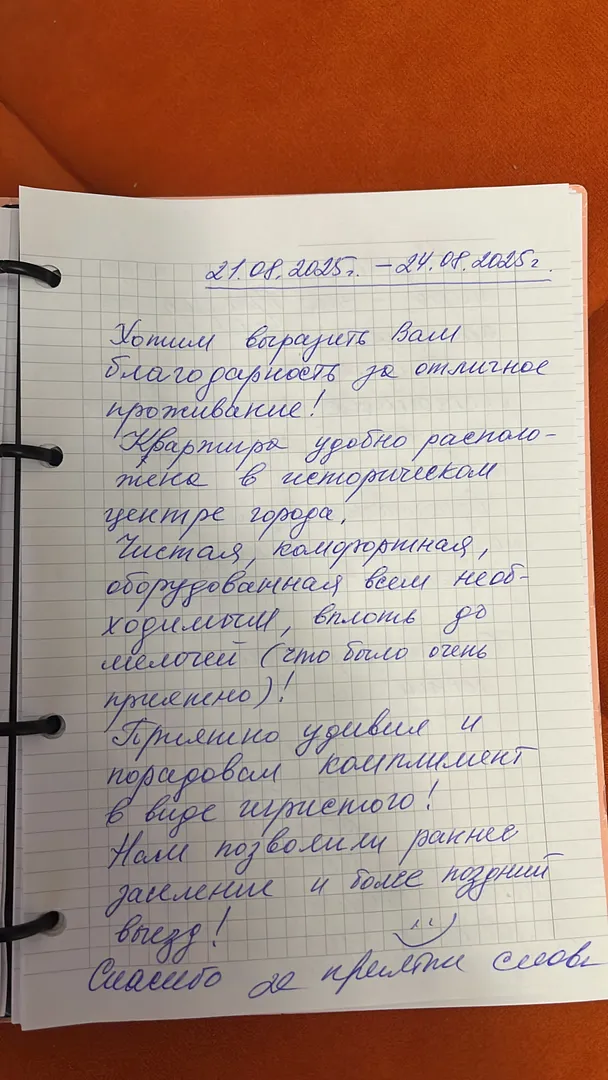 21.08.2025г. – 24.08.2025г.
Хотим выразить Вам
благодарность за отличное
проживание!
Квартира удобно располо-
жена в историческом
центре города.
Чистая, комфортная,
оборудованная всем необ-
ходимым, вплоть до
мелочей (что было очень
приятно)!
Приятно удивил и
порадовал комплимент
в виде игристого!
Нам позволили раннее
заселение и более поздний
выезд!
Спасибо за